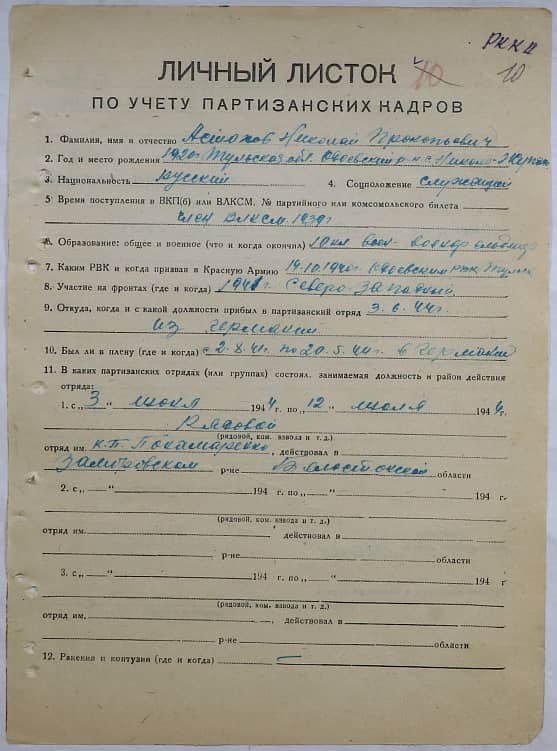 РККА
ЛИЧНЫЙ ЛИСТОК 10 10
ПО УЧЕТУ ПАРТИЗАНСКИХ КАДРОВ
1. Фамилия, имя и отчество Астахов Николай Прокопьевич
2. Год и место рождения 1920 г. Тульская обл. Одоевский р-н с. Николо-Жупань
3. Национальность русский 4. Соцположение служащий
5. Время поступления в ВКП(б) или ВЛКСМ, № партийного или комсомольского билета
Член ВЛКСМ. 1939 г
6. Образование: общее и военное (что и когда окончил) 10 кл. воен-
7. Каким РВК и когда призван в Красную Армию 14.10.1940 г. Одоевским РВК Тульск
8. Участие на фронтах (где и когда) 1941 г Северо Западный
9. Откуда, когда и с какой должности прибыл в партизанский отряд 3.6.44 г.
из Германии
10. Был ли в плену (где и когда) с 2.8.41 г. по 20.5.44 г. в Германии
11. В каких партизанских отрядах (или группах) состоял, занимаемая должность и район действия
отряда:
1. с „3 “ июня 1944 г. по „12 “ июля 1944 г.
Рядовой
(рядовой, ком. взвода и т. д.)
отряд им. к.п. Пономаренко, действовал в
р-не Белостокской области
2. с „ “ 194 г. по „ “ 194 г.
(рядовой, ком. взвода и т. д.)
отряд им. действовал в
р-не области
3. с „ “ 194 г. по „ “ 194 г
(рядовой, ком. взвода и т. д.)
отряд им, , действовал в
р-не области
12. Ранения и контузии (где и когда) —